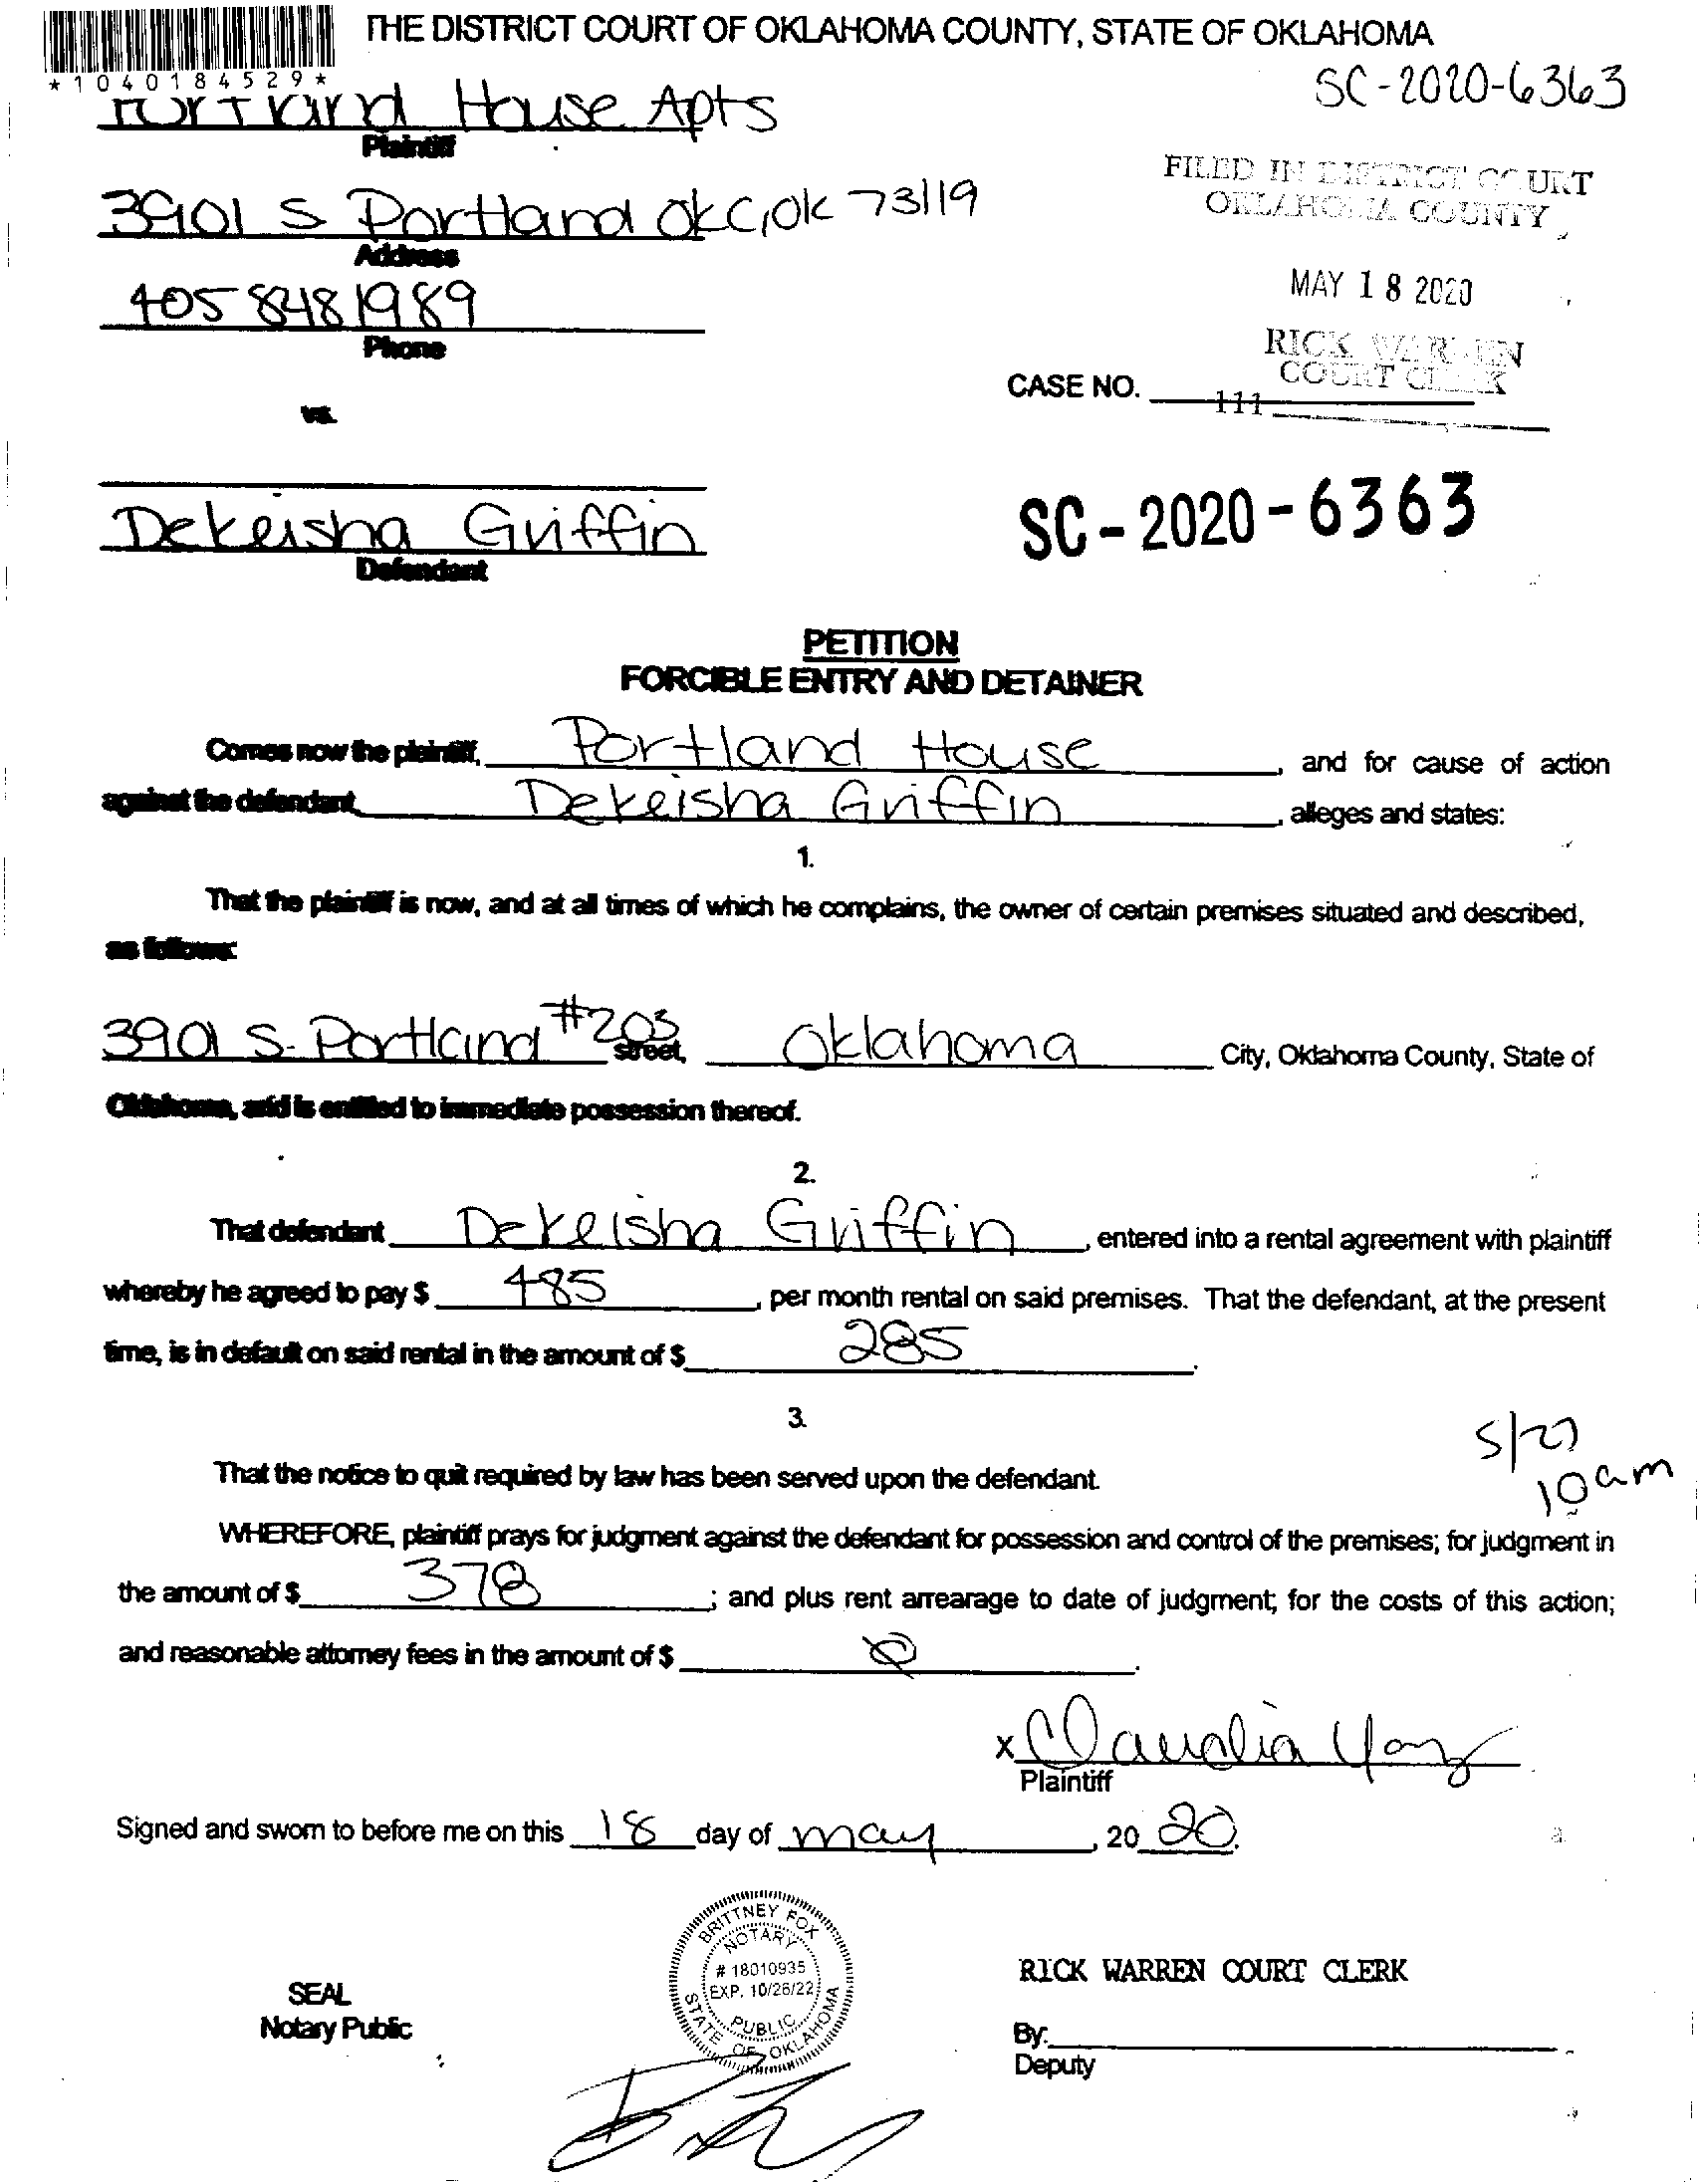 THE DISTRICT COURT OF OKLAHOMA COUNTY, STATE OF OKLAHOMA
*1040184529*
SC-2020-6363
Portland House Apts
Plaintiff
FILED IN DISTRICT COURT
OKLAHOMA COUNTY
3901 S Portland OKC, OK 73119
Address
MAY 18 2020
405 848 1989
Phone
RICK WARREN
COURT CLERK
CASE NO.
111
vs.
Dekeisha Griffin
Defendant
SC-2020-6363
PETITION
FORCIBLE ENTRY AND DETAINER
Comes now the plaintiff, Portland House, and for cause of action
against the defendant Dekeisha Griffin, alleges and states:
1.
That the plaintiff is now, and at all times of which he complains, the owner of certain premises situated and described,
as follows:
3901 S. Portland #203 street, Oklahoma City, Oklahoma County, State of
Oklahoma, and is entitled to immediate possession thereof.
2.
That defendant Dekeisha Griffin, entered into a rental agreement with plaintiff
whereby he agreed to pay $ 485, per month rental on said premises. That the defendant, at the present
time, is in default on said rental in the amount of $ 285.
3.
5/27
10am
That the notice to quit required by law has been served upon the defendant.
WHEREFORE, plaintiff prays for judgment against the defendant for possession and control of the premises; for judgment in
the amount of $ 378; and plus rent arrearage to date of judgment; for the costs of this action;
and reasonable attorney fees in the amount of $ 0.
x Claudia
Plaintiff
Signed and sworn to before me on this 18 day of may, 20 20.
BRITTNEY FOX
NOTARY
# 18010935
EXP. 10/26/22
PUBLIC
STATE OF OKLAHOMA
SEAL
Notary Public
RICK WARREN COURT CLERK
By:
Deputy